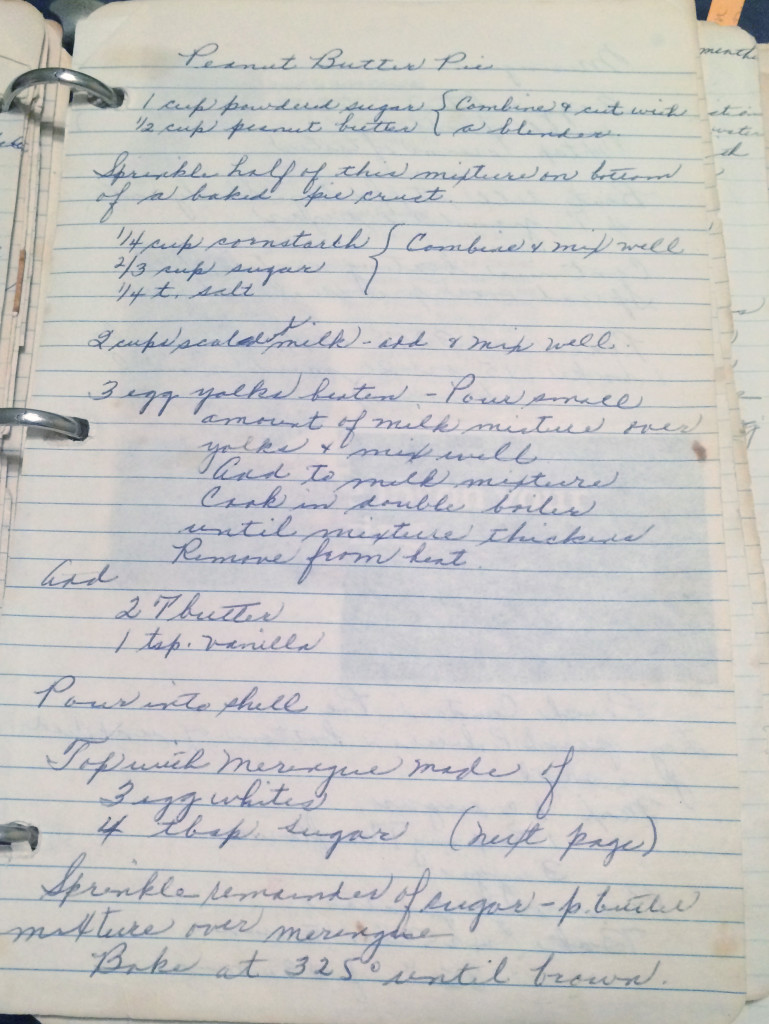 Peanut Butter Pie
1 cup powdered sugar { Combine & cut with
1/2 cup peanut butter { a blender.
Sprinkle half of this mixture on bottom
of a baked pie crust.
1/4 cup cornstarch { Combine & mix well
2/3 cup sugar
1/4 t. salt
2 cups scalded milk - add & mix well.
3 egg yolks beaten - Pour small
amount of milk mixture over
yolks & mix well
Add to milk mixture
Cook in double boiler
until mixture thickens
Remove from heat.
Add
2 T butter
1 tsp. vanilla
Pour into shell
Top with Merengue made of
3 egg whites
4 tbsp. sugar (next page)
Sprinkle remainder of sugar - p. butter
mixture over merengue
Bake at 325° until brown.